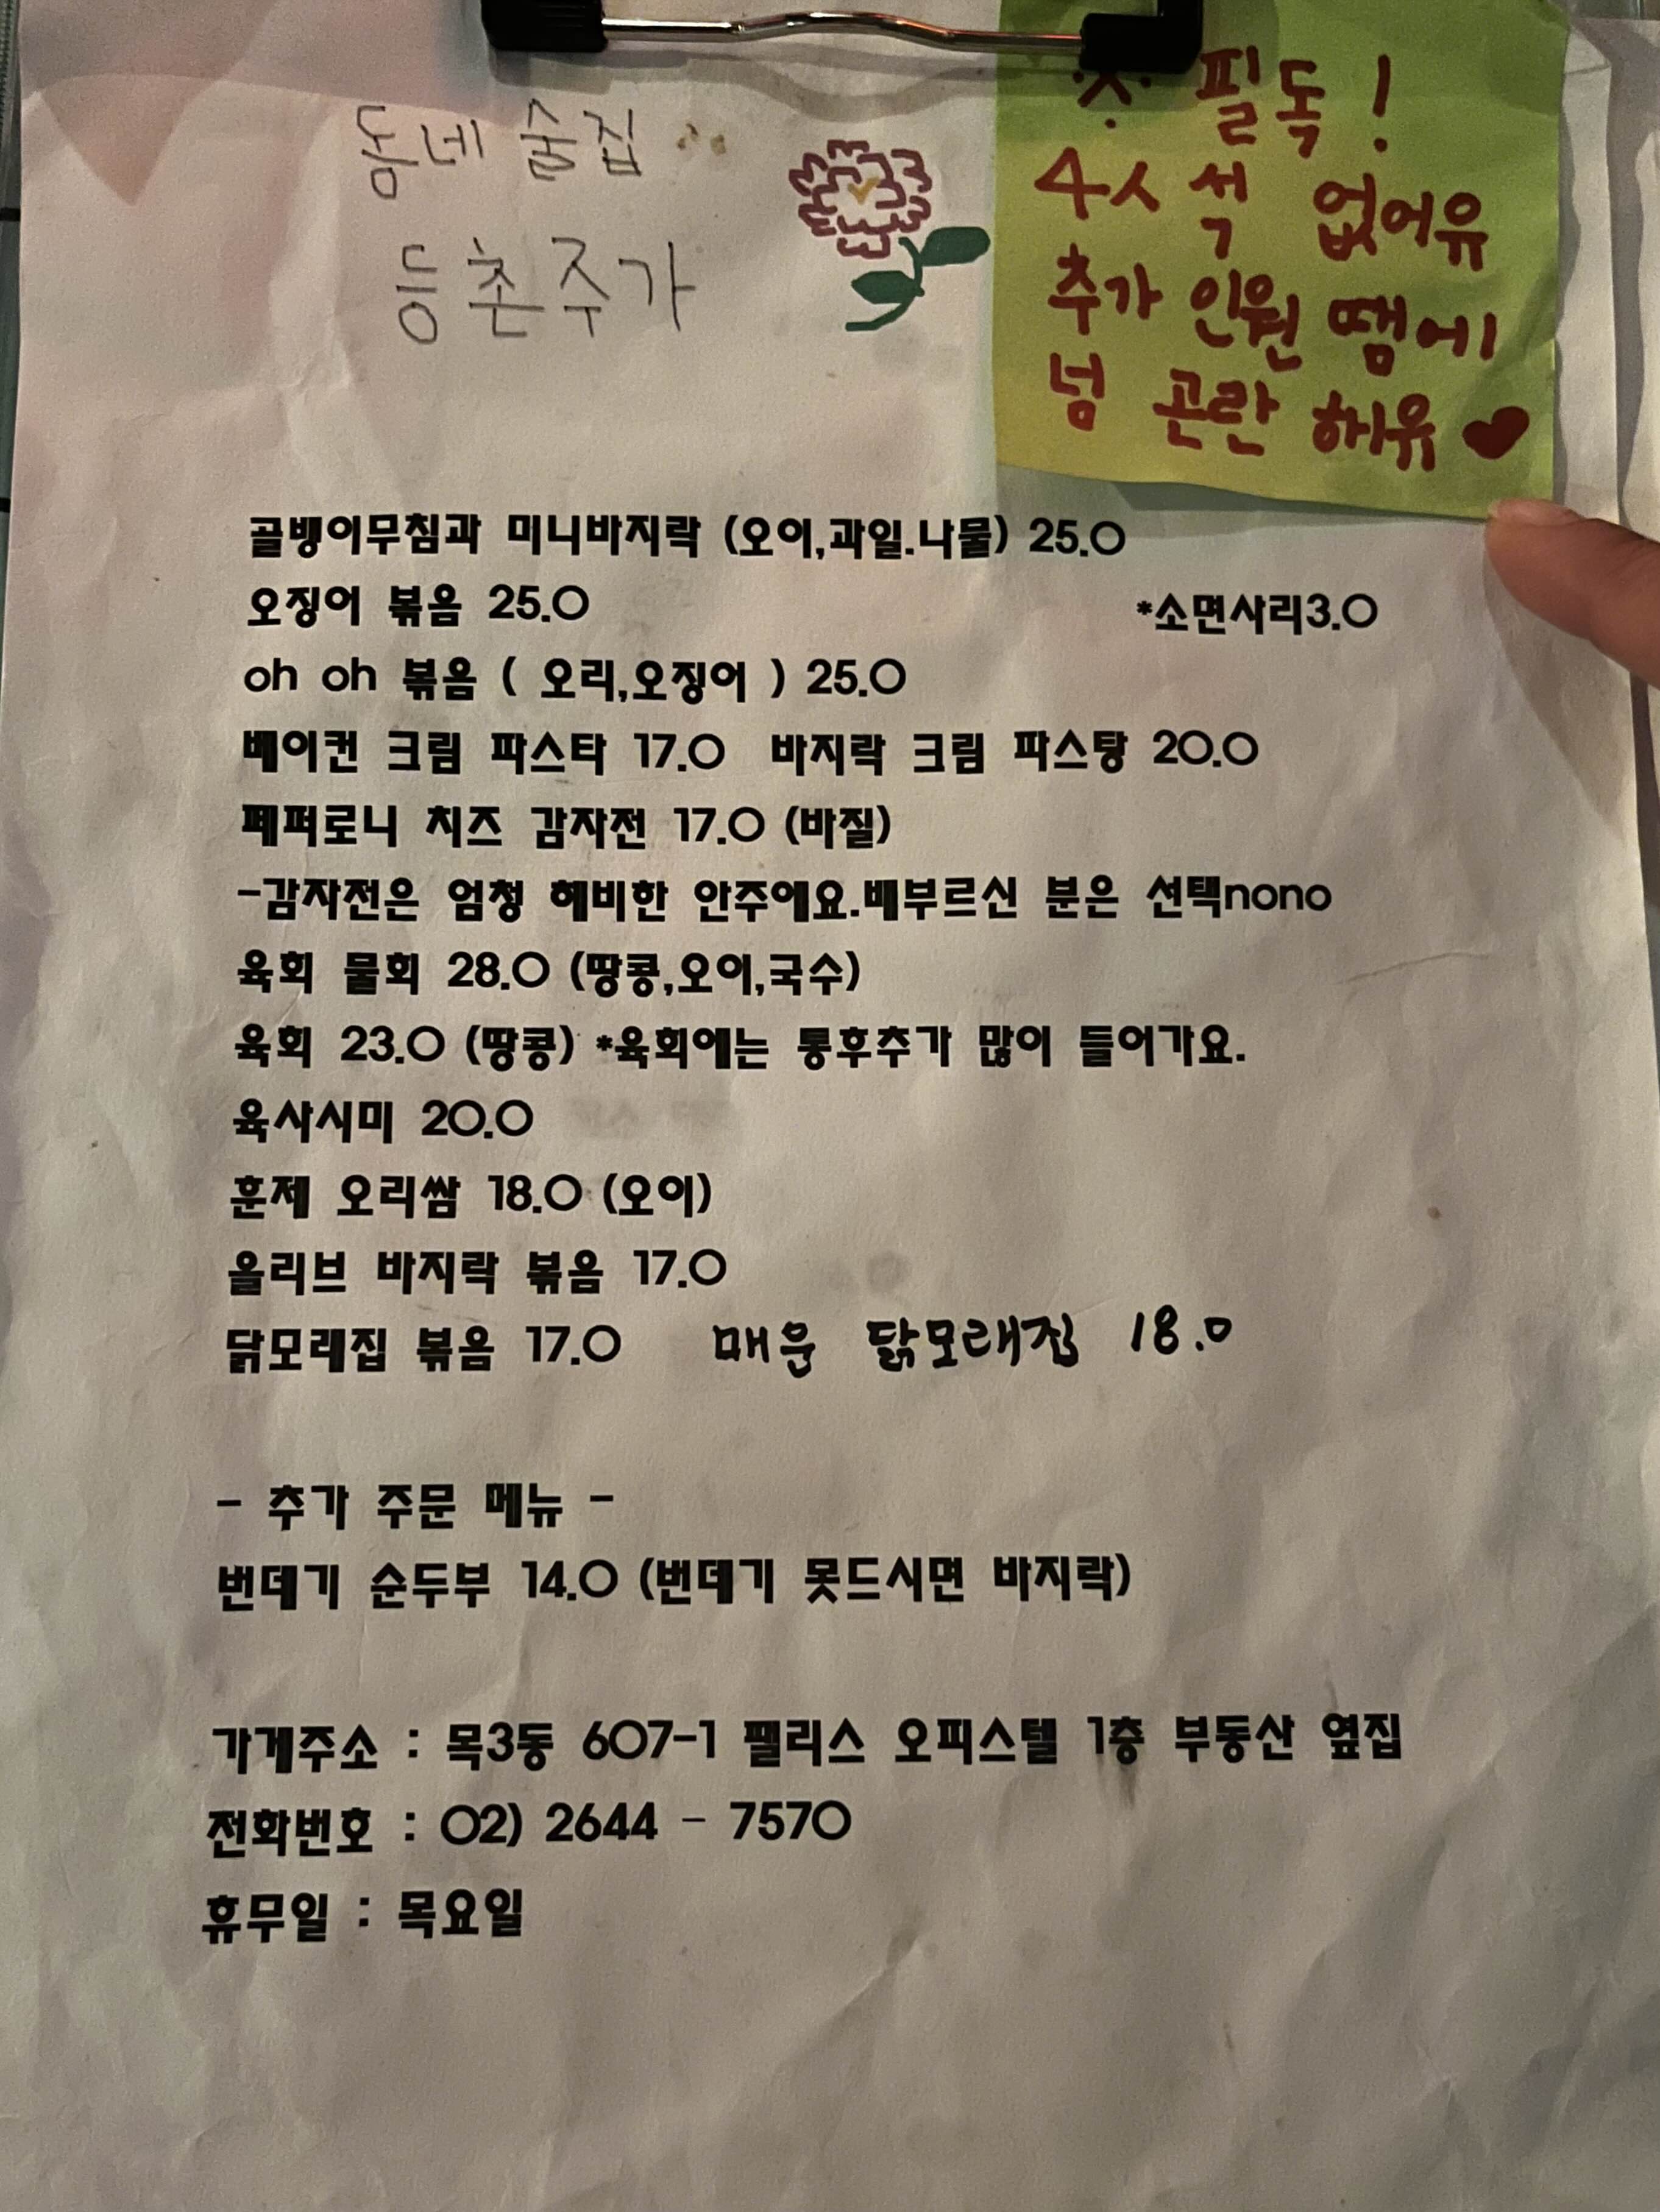 동네술집
등촌주가
※ 필독!
4人석 없어유
추가 인원 땜에
넘 곤란 해유
골뱅이무침과 미니바지락 (오이,과일.나물) 25.0
오징어 볶음 25.0 *소면사리3.0
oh oh 볶음 ( 오리,오징어 ) 25.0
베이컨 크림 파스타 17.0 바지락 크림 파스탕 20.0
페퍼로니 치즈 감자전 17.0 (바질)
-감자전은 엄청 헤비한 안주에요.배부르신 분은 선택nono
육회 물회 28.0 (땅콩,오이,국수)
육회 23.0 (땅콩) *육회에는 통후추가 많이 들어가요.
육사시미 20.0
훈제 오리쌈 18.0 (오이)
올리브 바지락 볶음 17.0
닭모래집 볶음 17.0 매운 닭모래집 18.0
- 추가 주문 메뉴 -
번데기 순두부 14.0 (번데기 못드시면 바지락)
가게주소 : 목3동 607-1 펠리스 오피스텔 1층 부동산 옆집
전화번호 : 02) 2644 - 7570
휴무일 : 목요일